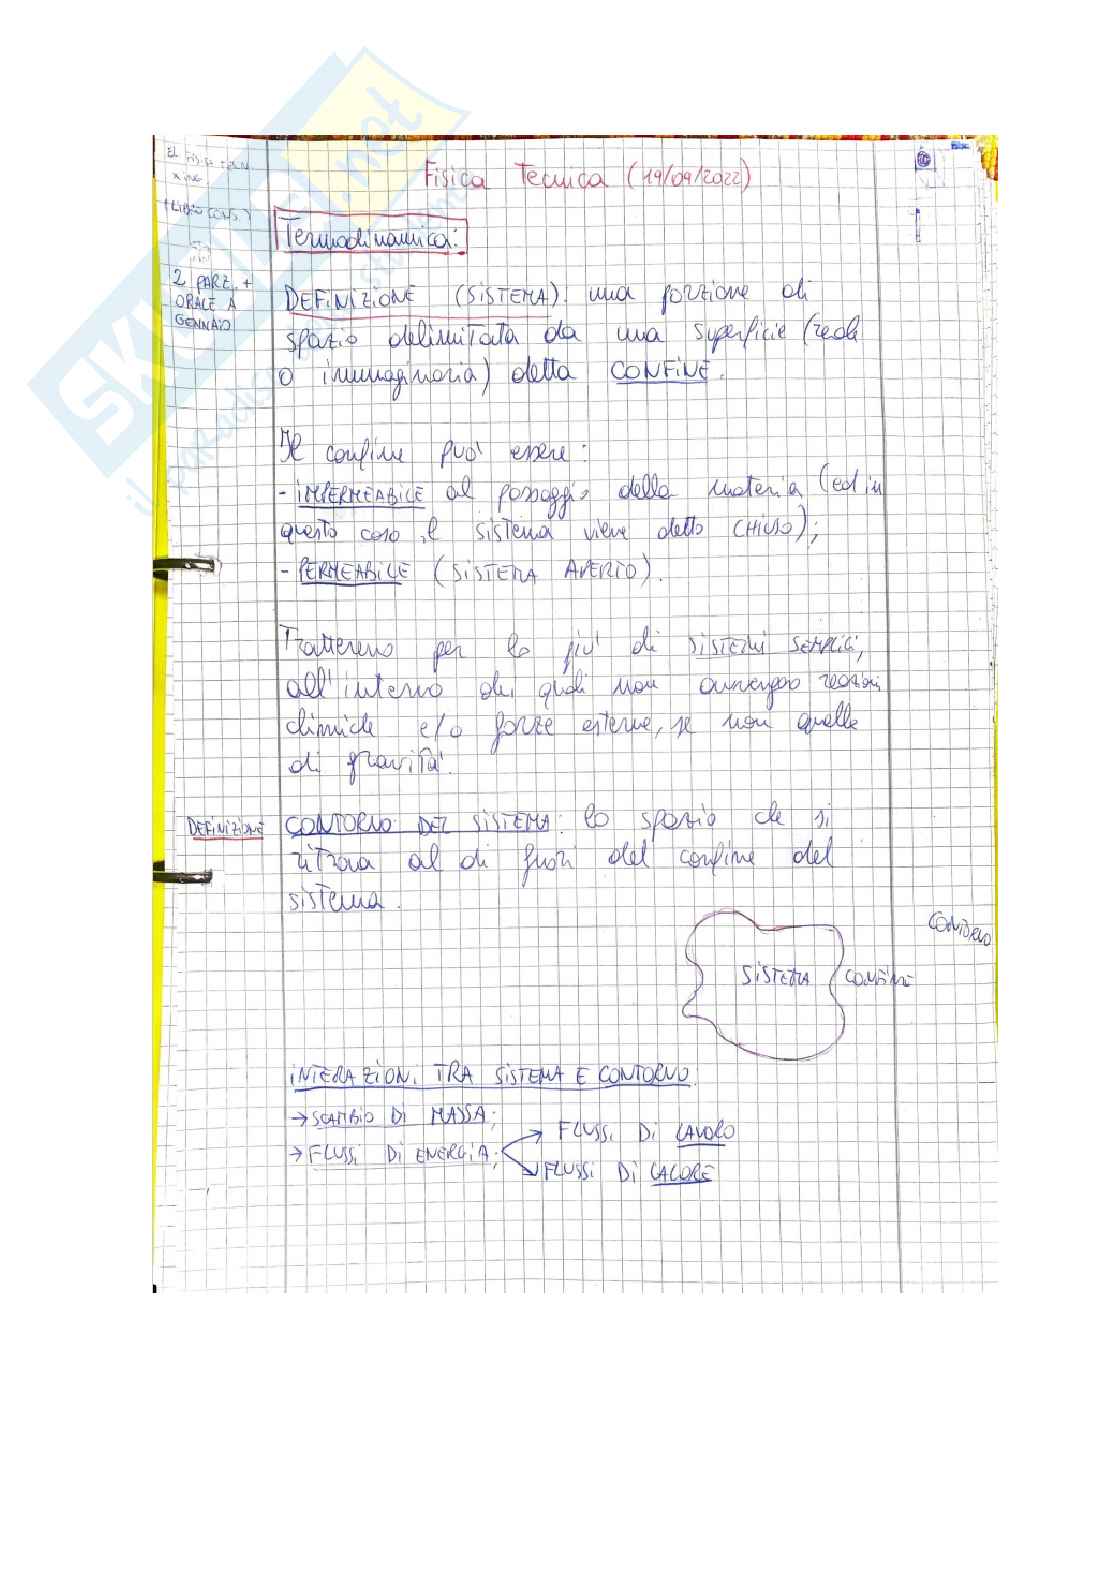 Fisica Tecnica (19/09/2022)
Termodinamica:
2 PARZ. +
ORALE A
GENNAIO
DEFINIZIONE (SISTEMA): una porzione di
spazio delimitata da una superficie (reale
o immaginaria) detta CONFINE.
Il confine può essere:
- IMPERMEABILE al passaggio della materia (ed in
questo caso il sistema viene detto CHIUSO);
- PERMEABILE (SISTEMA APERTO).
Tratteremo per lo più di SISTEMI SEMPLICI,
all'interno dei quali non avvengono reazioni
chimiche e/o forze esterne, se non quelle
di gravità.
DEFINIZIONE
CONTORNO DEL SISTEMA: lo spazio che si
ritrova al di fuori del confine del
sistema.
CONTORNO
SISTEMA CONFINE
INTERAZIONI TRA SISTEMA E CONTORNO
→ SCAMBIO DI MASSA;
→ FLUSSI DI ENERGIA;
FLUSSI DI LAVORO
FLUSSI DI CALORE
SKUOLA.net